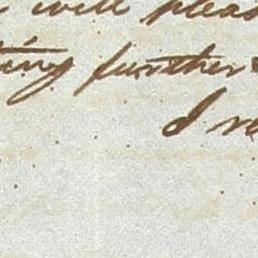 will pleas
ting further
I re